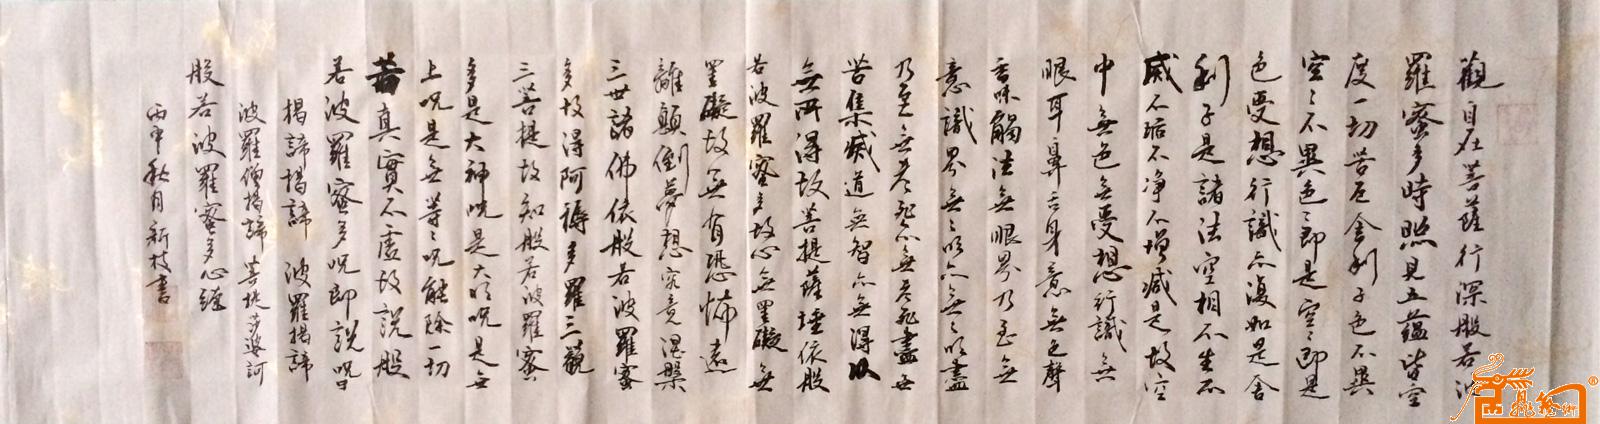 觀自在菩薩行深般若波
羅蜜多時照見五蘊皆空
度一切苦厄舍利子色不異
空〻不異色〻即是空〻即是
色受想行識亦復如是舍
利子是諸法空相不生不
滅不垢不净不增減是故空
中無色無受想行識無
眼耳鼻舌身意無色聲
香味觸法無眼界乃至無
意識界無〻明亦無〻明盡
乃至無老死亦無老死盡無
苦集滅道無智亦無得以
無所得故菩提薩埵依般
若波羅蜜多故心無罣礙無
罣礙故無有恐怖遠
離顛倒夢想究竟涅槃
三世諸佛依般若波羅蜜
多故得阿耨多羅三藐
三菩提故知般若波羅蜜
多是大神咒是大明咒是無
上咒是無等〻咒能除一切
苦真實不虛故說般
若波羅蜜多咒即說咒曰
揭諦揭諦 波羅揭諦
波羅僧揭諦 菩提莎婆訶
般若波羅蜜多心經
丙申秋月新枝書